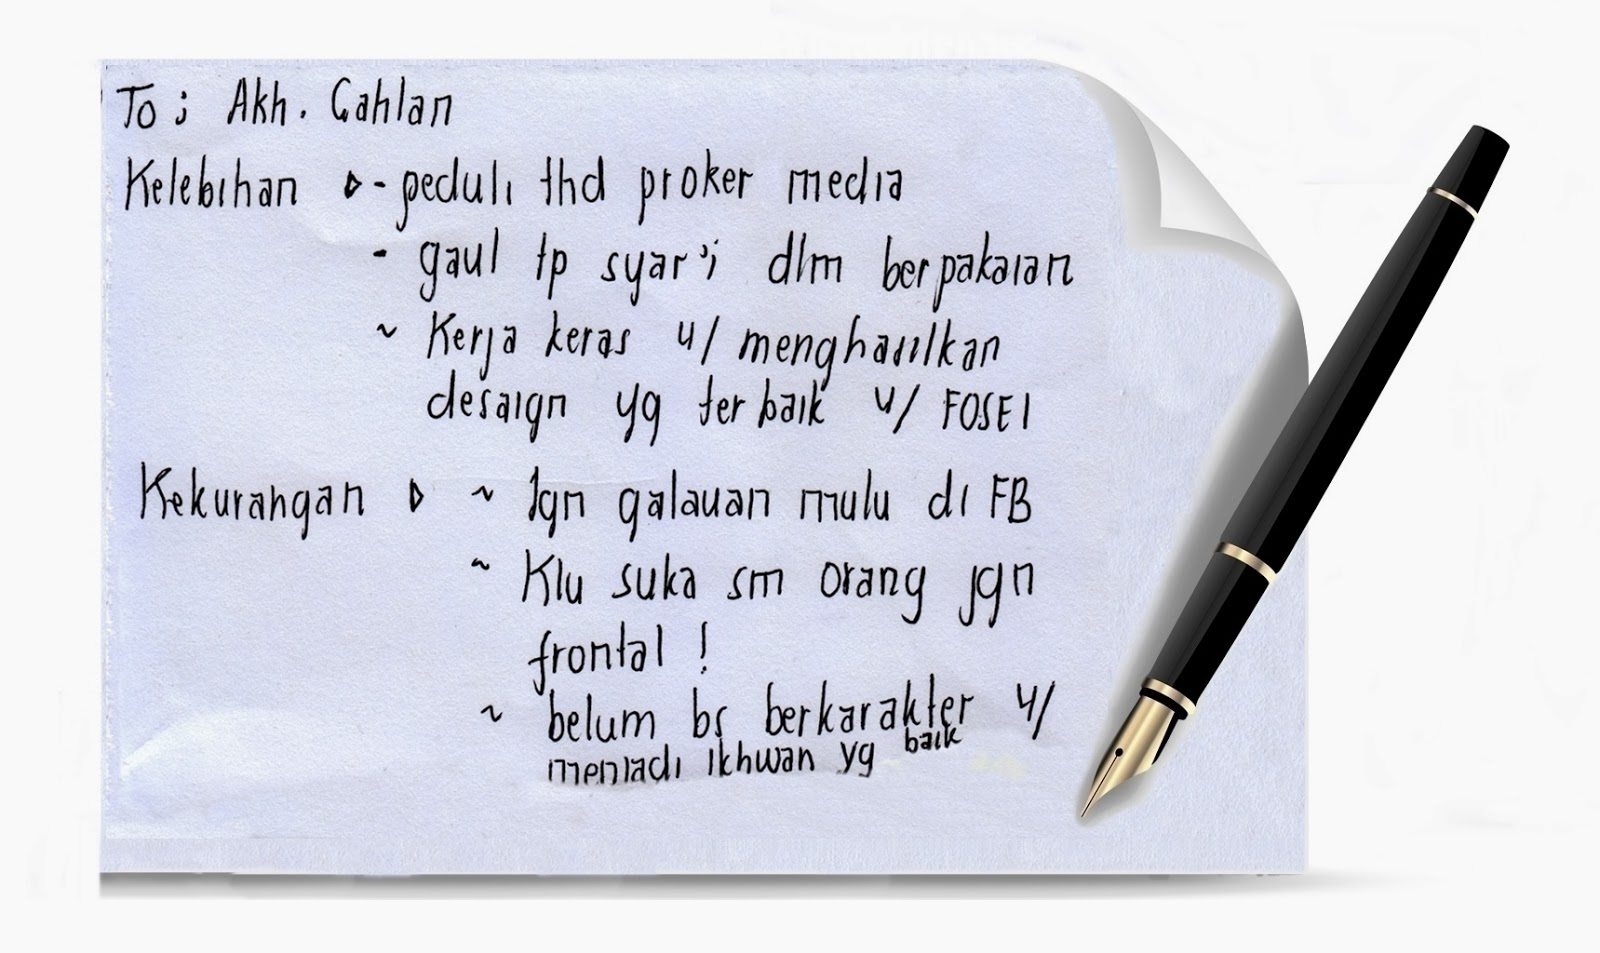 To : Akh. Gahlan
Kelebihan ▷ - peduli thd proker media
- gaul tp syar'i dlm berpakaian
~ Kerja keras u/ menghasilkan
desaign yg terbaik u/ FOSEI
Kekurangan ▷ ~ Jgn galauan mulu di FB
~ Klu suka sm orang jgn
frontal !
~ belum bs berkarakter u/
menjadi ikhwan yg baik